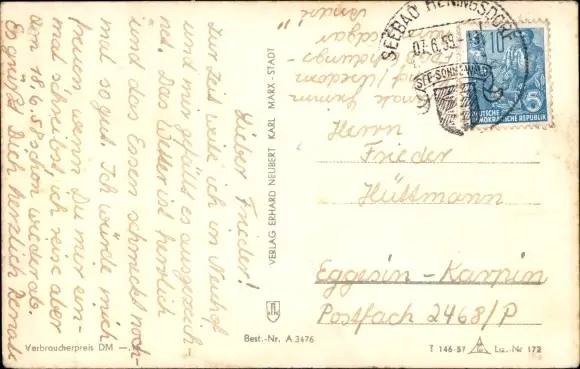 Lieber Frieder!
Zur Zeit weile ich in Neuhof
und mir gefällt es ausgezeich-
net. Das Wetter ist herrlich
und das Essen schmeckt noch-
mal so gut. Ich würde mich
freuen wenn Du mir ein-
mal schreibst, ich reise aber
den 18.6.58 schon wieder ab.
Es grüßt Dich herzlich
VERLAG ERHARD NEUBERT KARL-MARX-STADT
SEEBAD HERINGSDORF
07.6.58
10
OSTSEE-SONNE-WALD
DEUTSCHE
DEMOKRATISCHE REPUBLIK
5
Herrn
Frieder
Hültmann
Eggesin-Karpin
Postfach 2468/P
Verbraucherpreis DM
Best.-Nr. A 3476
T 146-57
Liz.-Nr 172